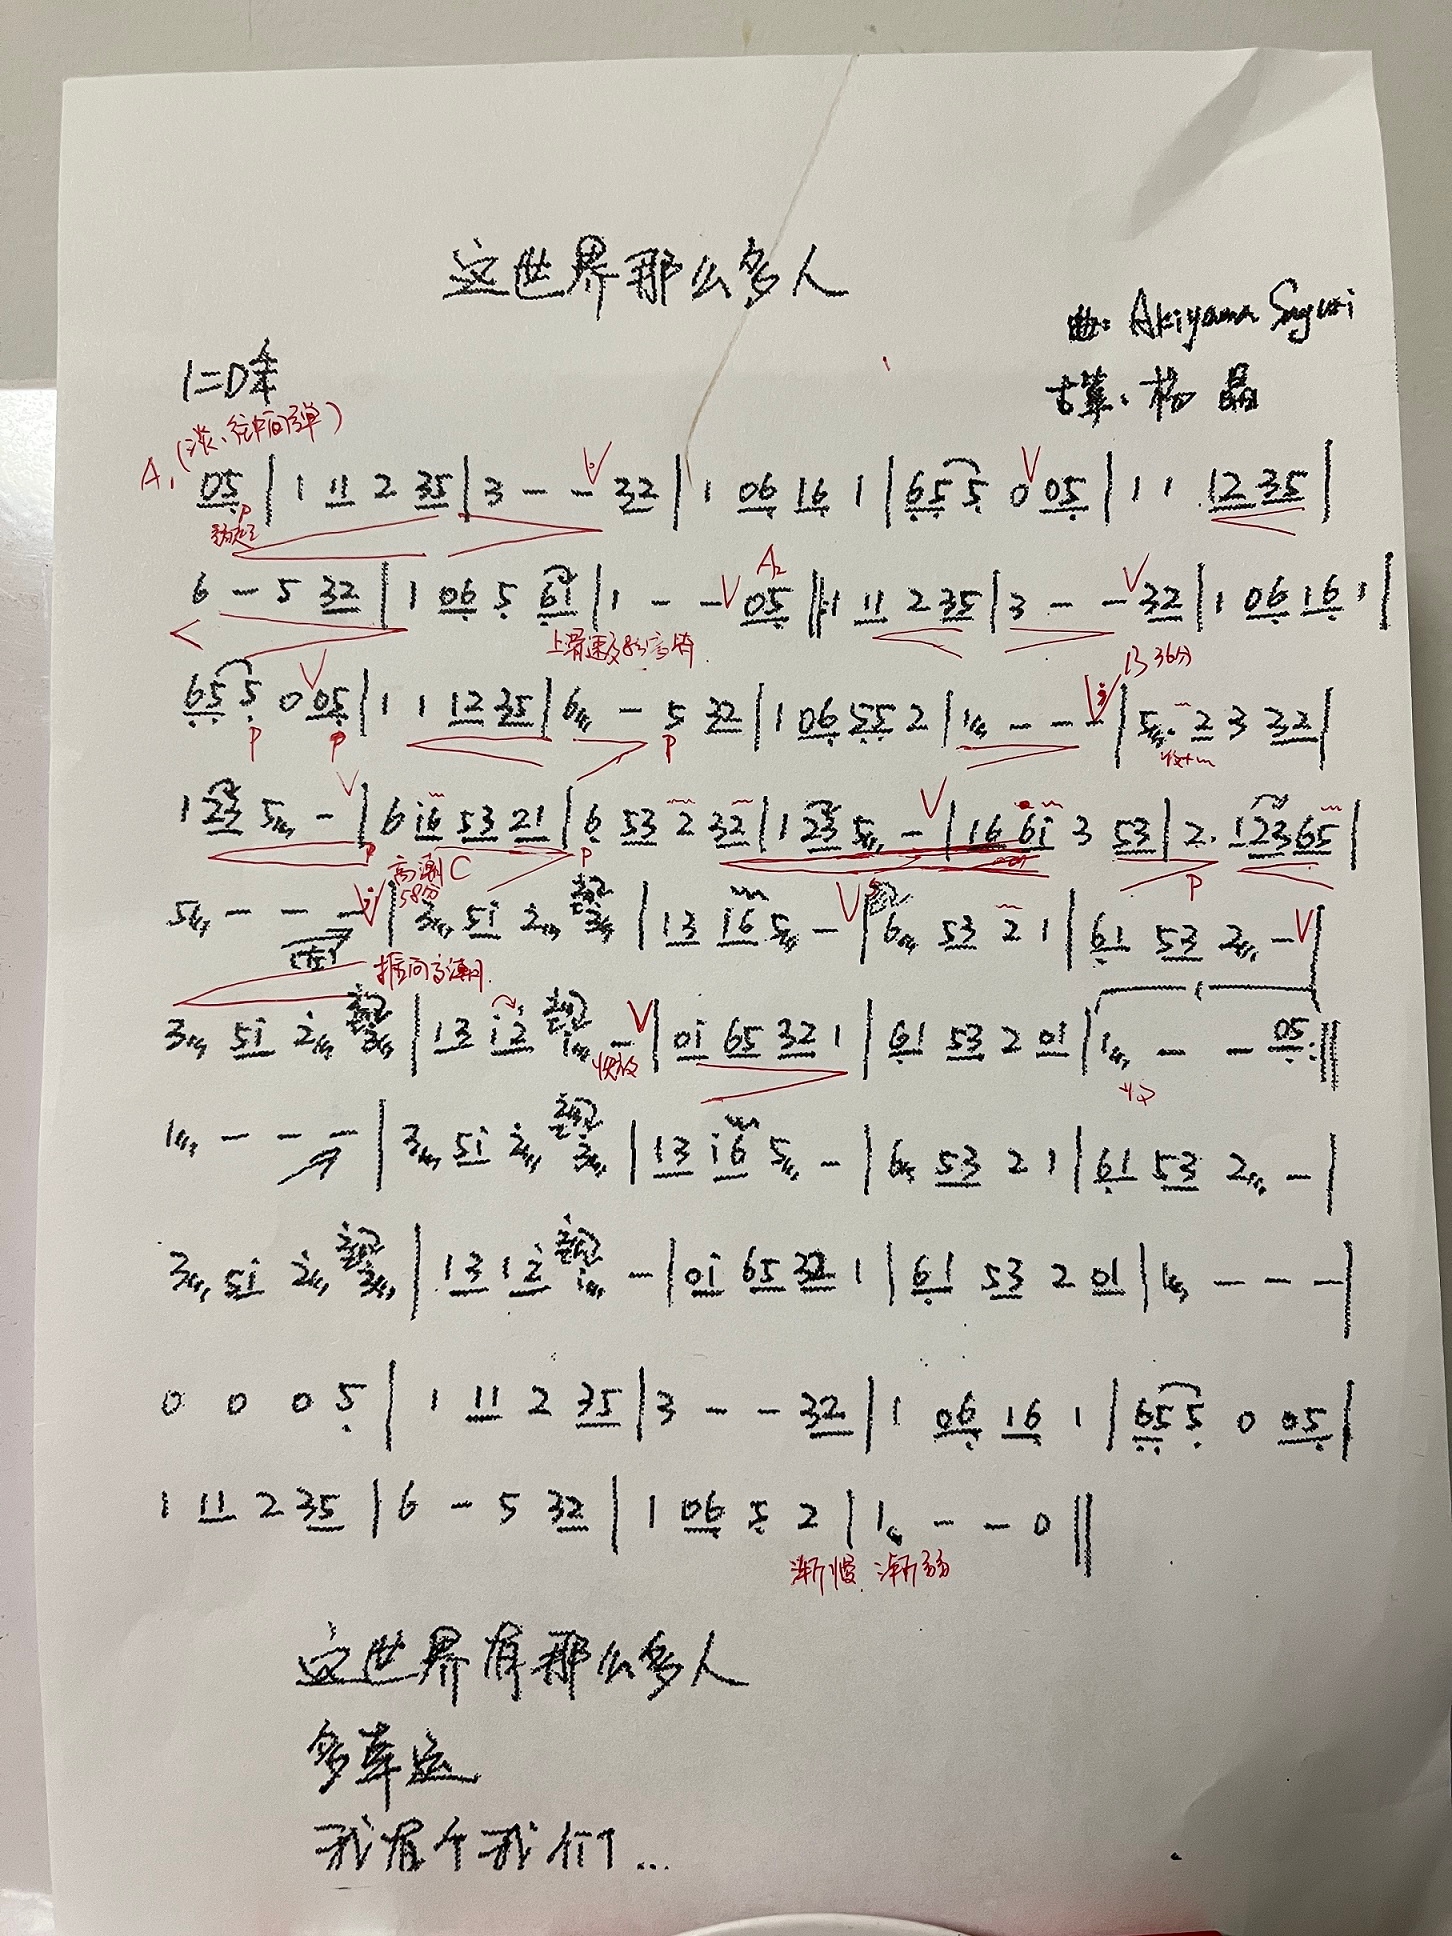 这世界那么多人
曲: Akiyama Sayuri
1=D
古筝: 杨晶
A1 (淡、往中间弹)
05 | 1 11 2 35 | 3 - - 32 | 1 06 16 1 | 655 0 05 | 1 1 12 35 |
弱起
6 - 5 32 | 1 06 5 61 | 1 - - 05 ‖: 1 11 2 35 | 3 - - 32 | 1 06 16 1 |
A2
655 0 05 | 1 1 12 35 | 6 - 5 32 | 1 06 55 2 | 1 - - - | 5. 2 3 32 |
P P P
B 36分
1 23 5 - | 6 i6 53 21 | 6 53 2 32 | 1 23 5 - | 16 6i 3 53 | 2. 12365 |
P P P
高潮C
58分
5 - - - | 3 5i 2 3 | 13 i6 5 - | 6 53 2 1 | 61 53 2 - |
推向高潮
3 5i 2 3 | 13 i2 i - | 0i 65 32 1 | 61 53 2 01 | 1 - - 05 :‖
1 - - - | 3 5i 2 3 | 13 i6 5 - | 6 53 2 1 | 61 53 2 - |
3 5i 2 3 | 13 12 i - | 0i 65 32 1 | 61 53 2 01 | 1 - - - |
0 0 0 5 | 1 11 2 35 | 3 - - 32 | 1 06 16 1 | 655 0 05 |
1 11 2 35 | 6 - 5 32 | 1 06 5 2 | 1 - - 0 ‖
渐慢 渐弱
这世界有那么多人
多幸运
我有个我们...